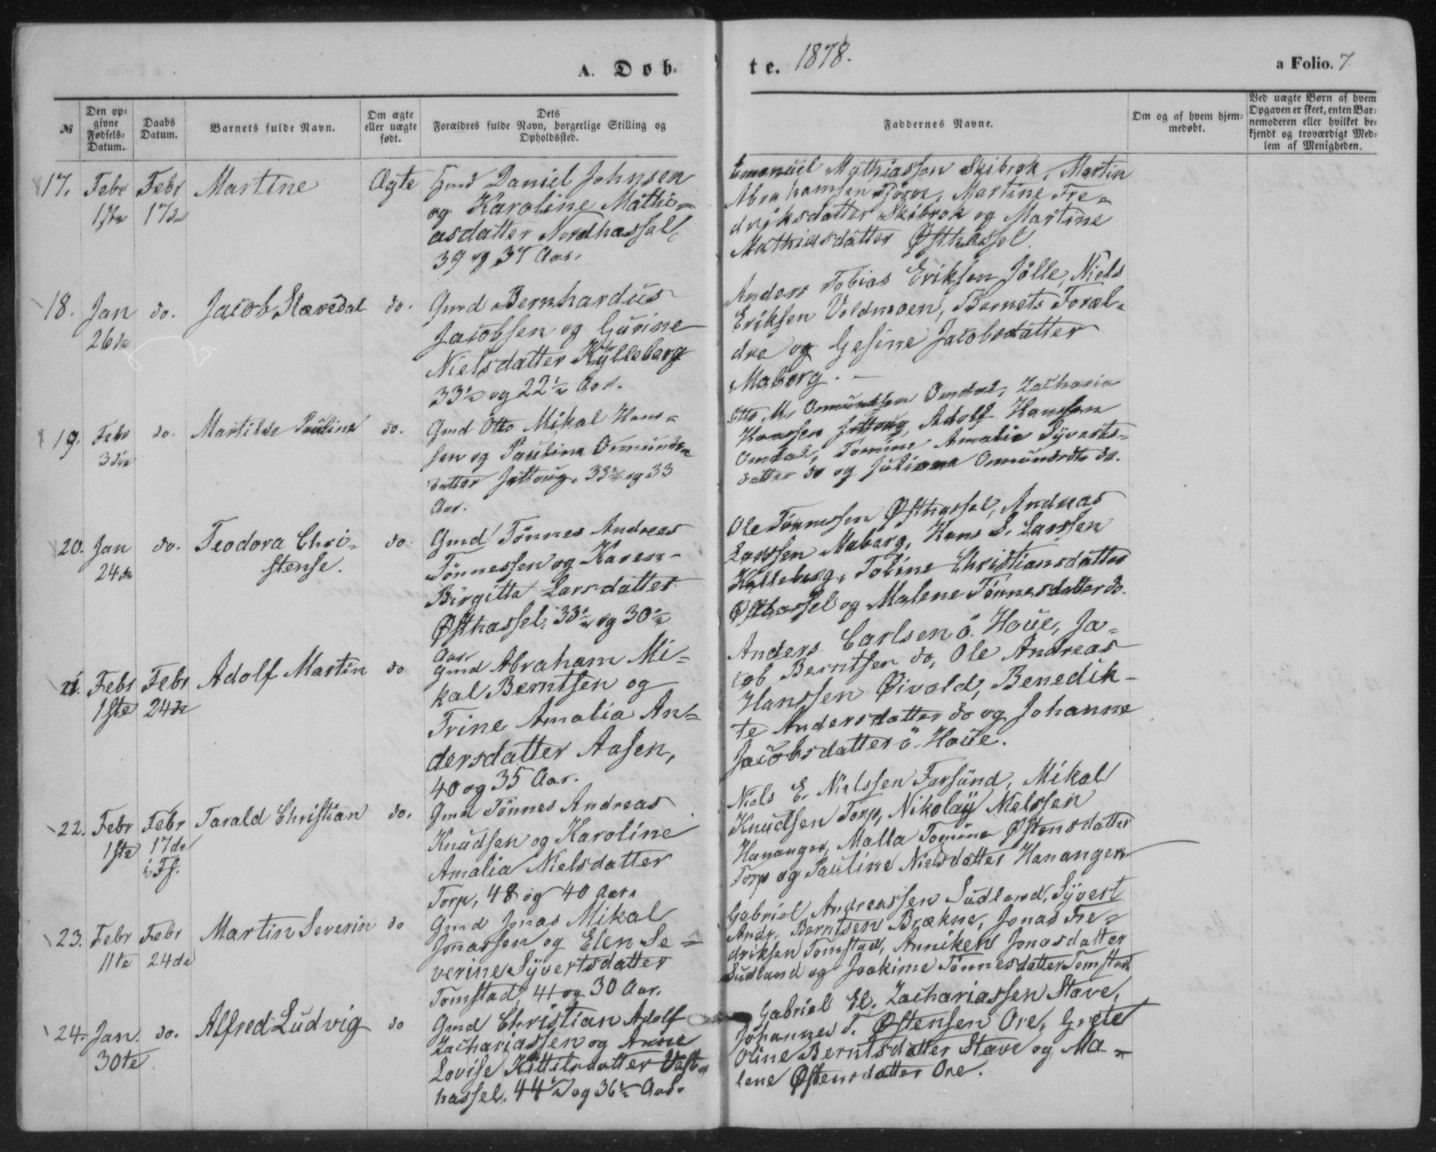 A. Døb- te. 1878. a Folio. 7
№ Den op-givne Fødsels-Datum. Daabs Datum. Barnets fulde Navn. Om ægte eller uægte født. Dets Forældres fulde Navn, borgerlige Stilling og Opholdssted. Faddernes Navne. Om og af hvem hjem-medøbt. Ved uægte Børn af hvem Opgaven er skeet, enten Bar-nemoderen eller hvilket be-kjendt og troværdigt Med-lem af Menigheden.
17. Febr Febr Martine Ægte Gmd Daniel Johnsen
17de
og Karoline Mathi-
asdatter Nordhassel
39 og 37 Aar.
Emanuel Mathiassen Skibrok, Martin
Abrahamsen, Martine Fre-
driksdatter Skibrok og Martine
Mathiasdatter Østhassel.
18. Jan do. Jacob Stavedal do. Gmd Bernhardus
26de Jacobsen og Gurine
Nielsdatter Kylleberg
33½ og 22½ Aar.
Anders Tobias Eriksen Jølle, Niels
Eriksen Voldmoen, Barnets Foræl-
dre og Gesine Jacobsdatter
Maberg.
19. Febr do. Martilde Pauline do. Gmd Otto Mikal Hans-
3die sen og Pauline Omunds-
datter 33½ og 33
Aar.
Otto M. Omundsen Omdal, Zacharia
Hanssen, Adolf Hanssen
Omdal, Tomine Amalie Syverts-
datter do og Juliane Omundsdtr do.
20. Jan do. Teodora Chri- do. Gmd Tønnes Andreas
24de stense. Tønnessen og Karen
Birgitte Larsdatter
Østhassel, 33½ og 30½
Aar.
Ole Tønnessen Østhassel, Andreas
Larssen Maberg, Hans S. Larssen
Kylleberg, Tobine Christiansdatter
Østhassel og Malene Tønnesdatter do.
21. Febr Febr Adolf Martin do Gmd Abraham Mi-
1ste 24de kal Berntsen og
Trine Amalia An-
dersdatter Aasen,
40 og 35 Aar.
Anders Carlsen ö. Houe, Ja-
cob Berntsen do, Ole Andreas
Hanssen Øivold, Benedik-
te Andersdatter do og Johanne
Jacobsdatter ö. Houe.
22. Febr Febr Tarald Christian do. Gmd Tønnes Andreas
1ste 17de Knudsen og Karoline
i Fs. Amalia Nielsdatter
Torp, 48 og 40 Aar.
Niels E. Nielssen Farsund, Mikal
Knudsen Torp, Nikolay Nielssen
Hananger, Malla Tomine Østensdatter
Torp og Pauline Nielsdatter Hananger
23. Febr Febr Martin Severin do Gmd Jonas Mikal
11te 24de Jonassen og Elen Se-
verine Syvertsdatter
Tomstad, 41 og 30 Aar.
Gabriel Andreassen Sudland, Syvert
Andr. Berntsen Brækne, Jonas Fre-
driksen Tomstad, Anniken Jonasdatter
Sudland og Joakime Tønnesdatter Tomstad
24. Jan do. Alfred Ludvig do Gmd Christian Adolf
30te Zachariassen og Anne
Lovise Kittilsdatter Vest-
hassel. 44½ og 36½ Aar.
Gabriel El. Zachariassen Stave,
Johannes T. Østensen Ore, Grete
Oline Berntsdatter Stave og Ma-
lene Østensdatter Ore.